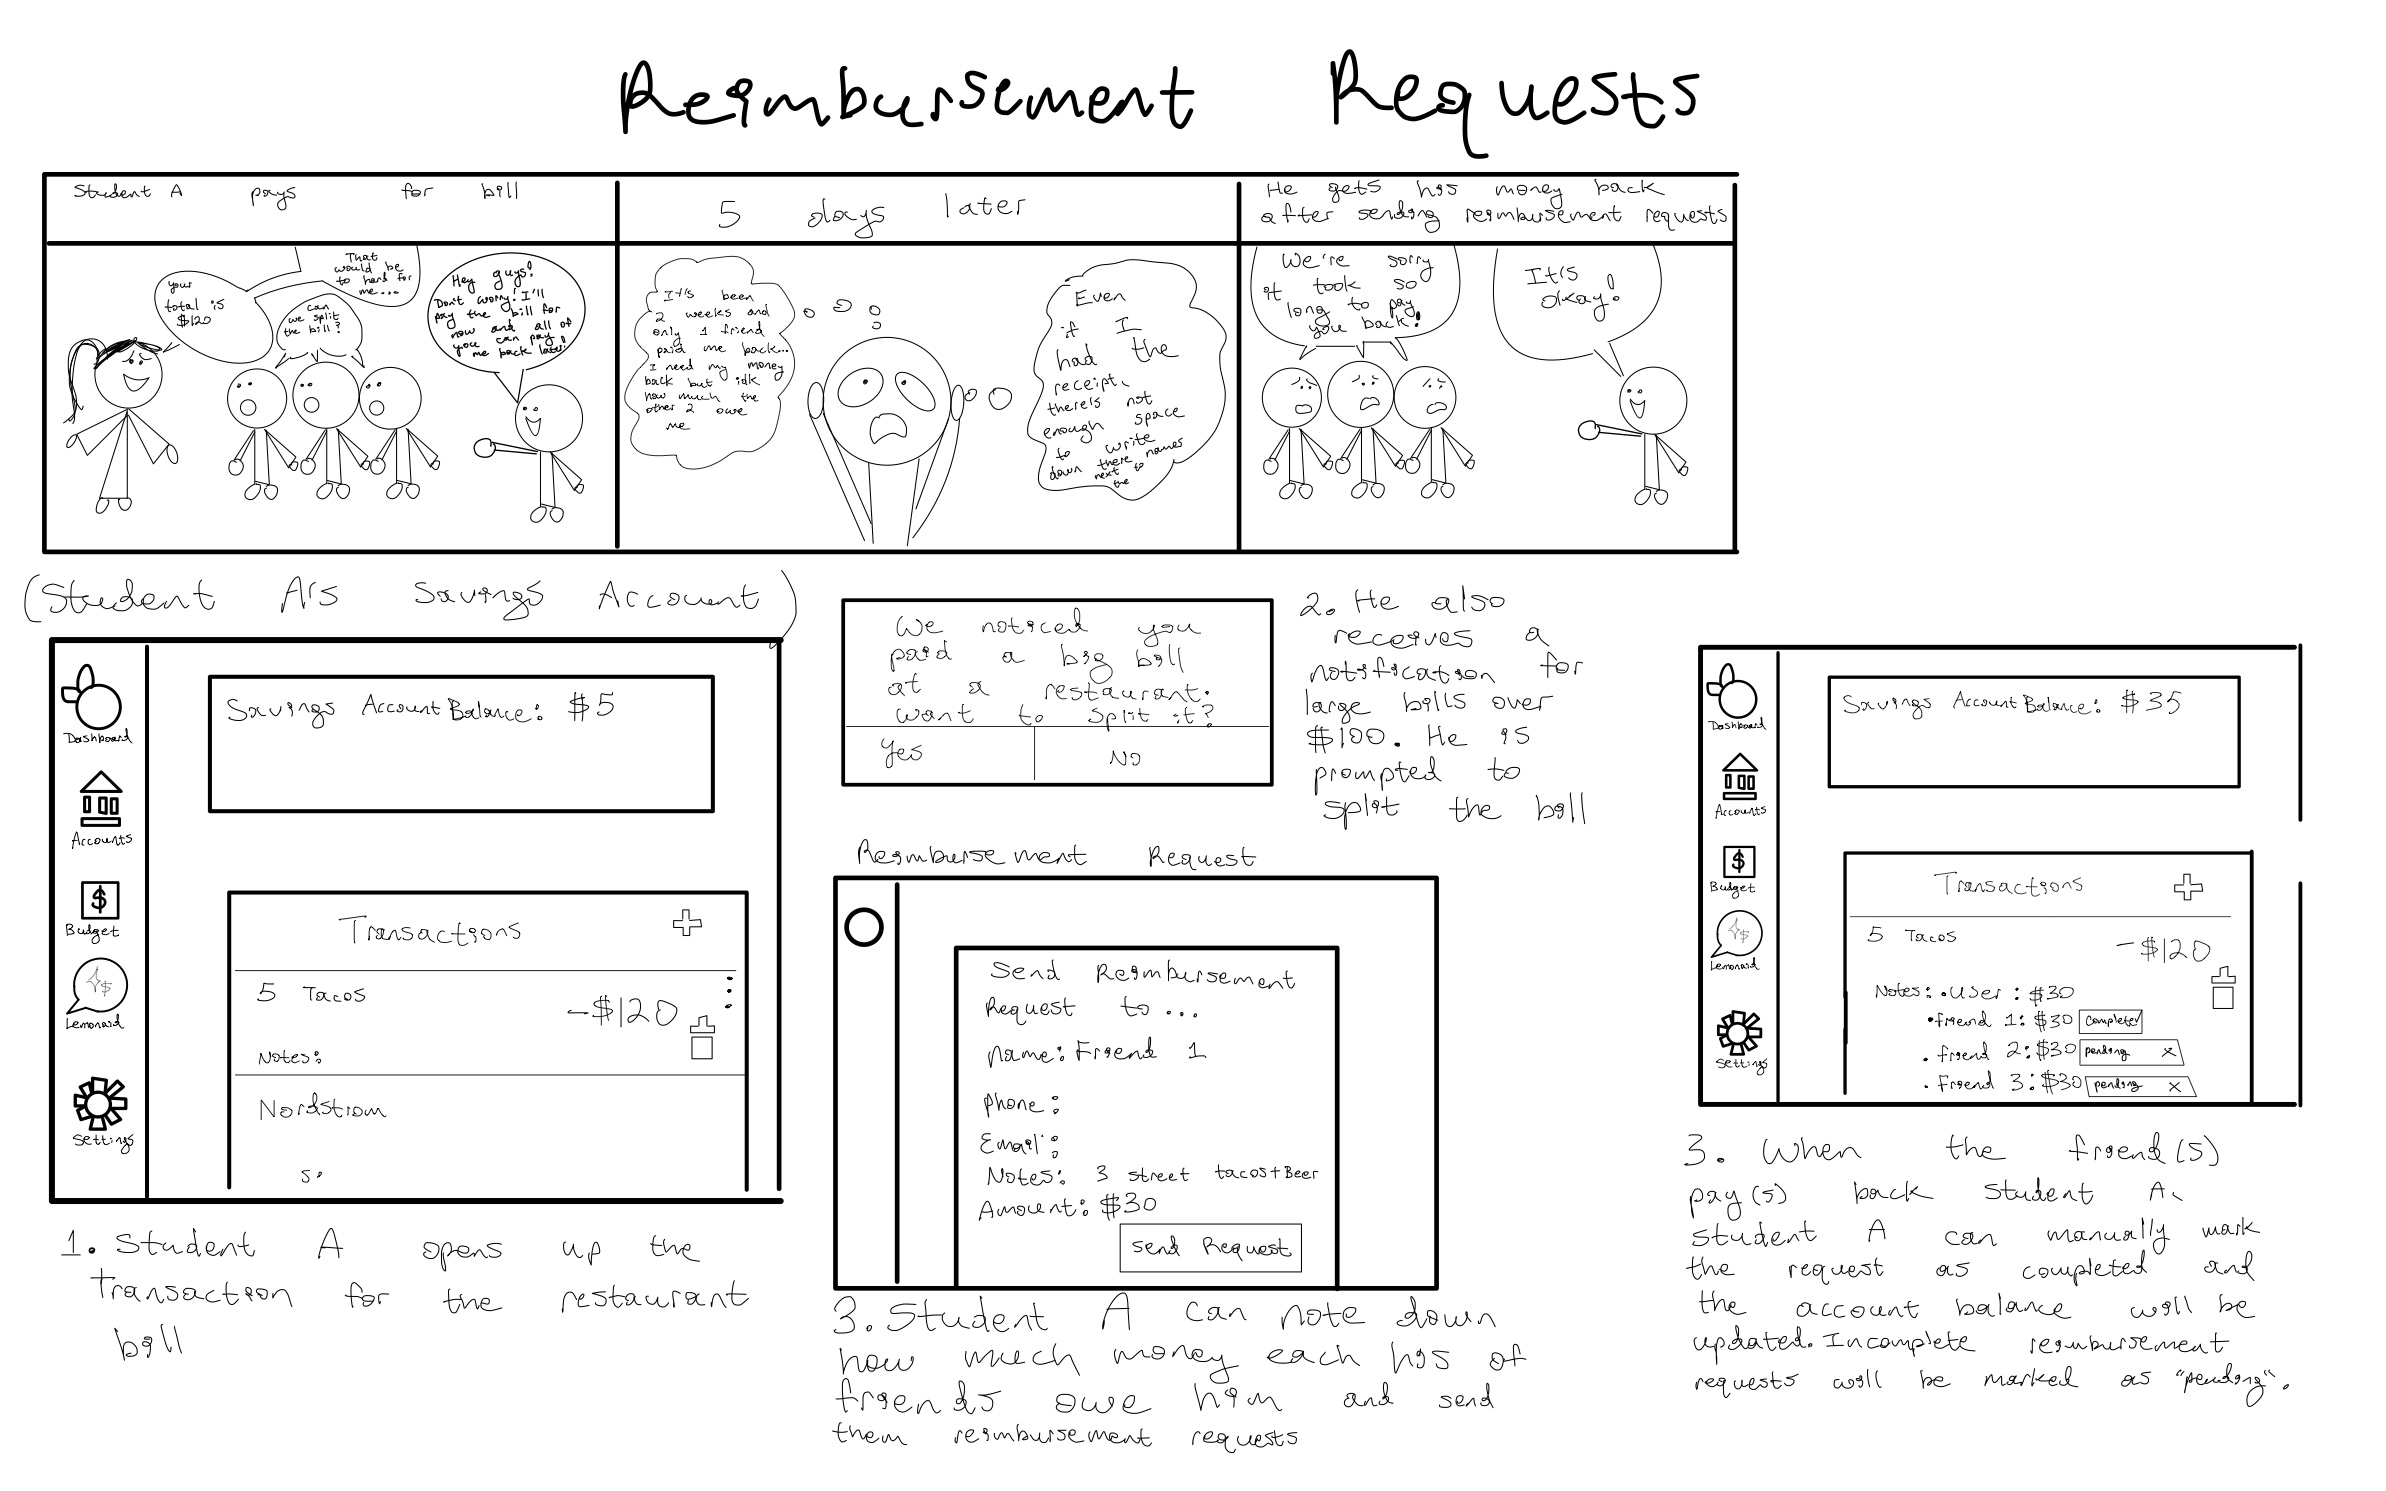 Reimbursement Requests
Student A pays for bill
your
total is
$120
can
we split
the bill?
That
would be
to hard for
me...
Hey guys!
Don't worry! I'll
pay the bill for
now and all of
you can pay
me back later!
5 days later
It's been
2 weeks and
only 1 friend
paid me back...
I need my money
back but idk
how much the
other 2 owe
me
Even
if I
had the
receipt,
there's not
enough space
to write
down there names
next to
the
He gets his money back
after sending reimbursement requests
We're sorry
it took so
long to pay
you back!
It's
okay!
(Student A's Savings Account)
Dashboard
Accounts
Budget
Lemonaid
Settings
Savings Account Balance: $5
Transactions
5 Tacos
-$120
Notes:
Nordstrom
s:
1. Student A opens up the
Transaction for the restaurant
bill
We noticed you
paid a big bill
at a restaurant.
want to split it?
Yes
No
2. He also
receives a
notification for
large bills over
$100. He is
prompted to
split the bill
Reimbursement Request
Send Reimbursement
Request to...
Name: Friend 1
Phone:
Email:
Notes: 3 street tacos+Beer
Amount: $30
Send Request
3. Student A can note down
how much money each his of
friends owe him and send
them reimbursement requests
Dashboard
Accounts
Budget
Lemonaid
Settings
Savings Account Balance: $35
Transactions
5 Tacos
-$120
Notes: • User: $30
• friend 1: $30 Complete
• friend 2: $30 pending x
• Friend 3: $30 pending x
3. When the friend(s)
pay(s) back Student A,
Student A can manually mark
the request as completed and
the account balance will be
updated. Incomplete reimbursement
requests will be marked as "pending".